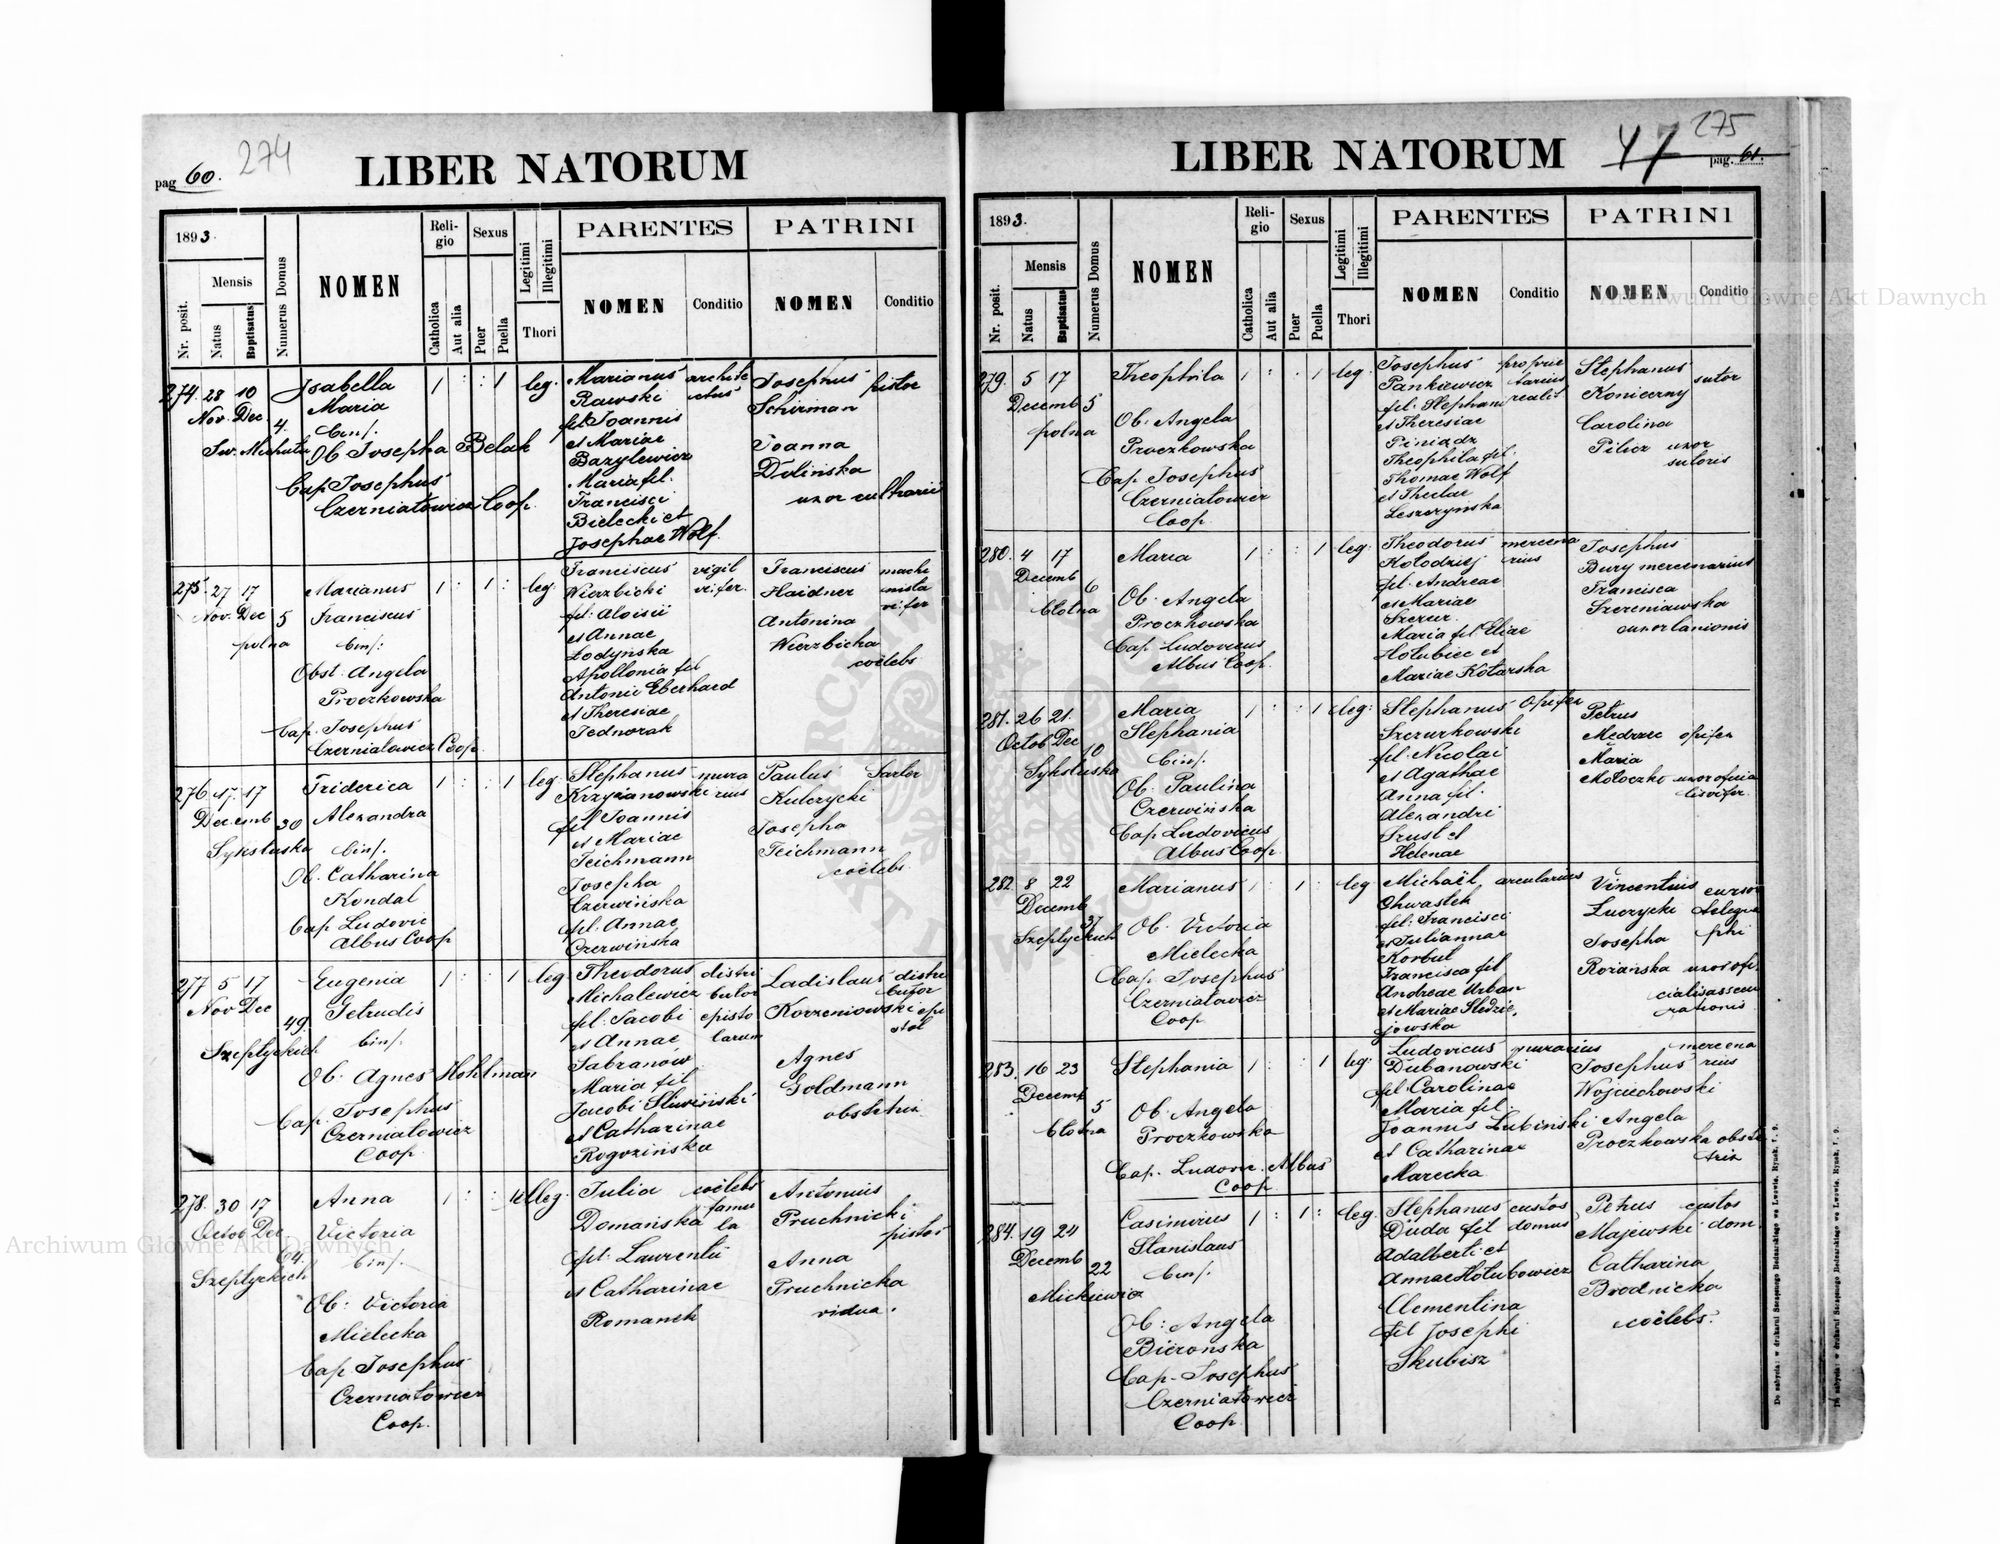 274
pag 60.
LIBER NATORUM
1893.
Nr. posit.
Mensis
Natus
Baptisatus
Numerus Domus
NOMEN
Religio
Catholica
Aut alia
Sexus
Puer
Puella
Legitimi
Illegitimi
Thori
PARENTES
NOMEN
Conditio
PATRINI
NOMEN
Conditio
274. 28 10
Nov. Dec
4.
Isabella
Maria
binf.
Ob Josepha Belak
Cap Josephus
Czerniatowicz Coop.
1 : : 1 leg.
Marianus archite
Rawski ctus
fil Joannis
et Mariae
Bazylewicz
Maria fil.
Francisci
Bielecki et
Josephae Wolf.
Josephus pistor
Schirman
Joanna
Dolińska
uxor cultrarii
275 27 17
Nov. Dec 5
polna
Marianus
Franciscus
binf:
Obst. Angela
Proczkowska
Cap. Josephus
Czerniatowicz Coop.
1 : 1 : leg.
Franciscus vigil
Wierzbicki vi: fer.
fil: Aloisii
et Annae
Lodynska
Apollonia fil
Antonii Eberhard
et Theresiae
Jednorak
Franciscus machi
Haidner nista
vi: fer
Antonina
Wierzbicka
coelebs
276 17. 17
Decemb 30
Sykstuska
Friderica
Alexandra
binf.
Ob. Catharina
Kondal
Cap Ludovic
Albus Coop
1 : : 1 leg.
Stephanus mura
Krzyzanowski rius
fil Joannis
et Mariae
Teichmann
Josepha
Czerwińska
fil. Annae
Czerwińska
Paulus Sartor
Kulczycki
Josepha
Teichmann
coelebs
277 5 17
Nov Dec
49.
Szeptyckich
Eugenia
Getrudis
binf.
Ob. Agnes Hohlman
Cap. Josephus
Czerniatowicz
Coop
1 : : 1 leg
Theodorus distri
Michalewicz butor
fil. Jacobi episto
et Annae larum
Sabranow
Maria fil
Jacobi Sliwiński
et Catharinae
Rogozińska
Ladislaus distri
butor
Korzeniowski epi
stol
Agnes
Goldmann
obstetrix
278. 30 17
Octob Dec
64.
Szeptyckich
Anna
Victoria
binf.
Ob: Victoria
Mielecka
Cap Josephus
Czerniatowicz
Coop.
1 : : 1 illeg.
Julia coelebs
famu
Domańska la
fil. Laurentii
et Catharinae
Romanek
Antonius
Pruchnicki
pistor
Anna
Pruchnicka
vidua.
275
47
pag. 61.
LIBER NATORUM
1893.
Nr. posit.
Mensis
Natus
Baptisatus
Numerus Domus
NOMEN
Religio
Catholica
Aut alia
Sexus
Puer
Puella
Legitimi
Illegitimi
Thori
PARENTES
NOMEN
Conditio
PATRINI
NOMEN
Conditio
279. 5 17
Decemb 5
polna
Theophila
Ob. Angela
Proczkowska
Cap. Josephus
Czerniatowicz
Coop
1 : . 1 leg.
Josephus proprie
Pankiewicz tarius
fil. Stephani realit
et Theresiae
Piniadz
Theophila fil.
Thomae Wolf
et Theclae
Leszczynska
Stephanus
sutor
Konieczny
Carolina
Pilicz uxor
sutoris
280. 4 17
Decemb
6
blotna
Maria
Ob. Angela
Proczkowska
Cap. Ludovicus
Albus Coop.
1 : : 1 leg.
Theodorus mercena
Kolodziej rius
fil. Andreae
et Mariae
Szczur
Maria fil Eliae
Holubiec et
Mariae Kotarska
Josephus
Bury mercenarius
Francisca
Szczeniawska
uxor lanionis
281. 26 21.
Octob Dec
10
Sykstuska
Maria
Stephania
binf.
Ob. Paulina
Czerwińska
Cap Ludovicus
Albus Coop.
1 : : 1 leg.
Stephanus Opifer
Szczurkowski
fil. Nicolai
et Agathae
Anna fil.
Alexandri
Szust et
Helenae
Petrus
Medrzec opifer
Maria
Moloczko uxor officia
282. 8 22
Decemb
37
Szeptyckich
Marianus
Ob. Victoria
Mielecka
Cap. Josephus
Czerniatowicz
Coop.
1 : 1 : leg
Michaël arcularius
Chwastek
fil. Francisci
et Juliannae
Korbut
Francisca fil
Andreae Urban
et Mariae Sledzie,
jowska
Vincentius curso
Luczycki telegra
Josepha phi
Rożańska uxor offi.
cialis assecu
rationis
283. 16 23
Decemb
5
blotna
Stephania
Ob. Angela
Proczkowska
Cap. Ludovic. Albus
Coop
1 : : 1 leg.
Ludovicus murarius
Dubanowski
fil Carolinae
Maria fil
Joannis Lubiński
et Catharinae
Marecka
mercena
Josephus rius
Wojciechowski
Angela
Proczkowska obste
trix
284. 19 24
Decemb
22
Mickiewicza
Casimirus
Stanislaus
binf.
Ob: Angela
Bierońska
Cap. Josephus
Czerniatowicz
Coop
1 : 1 : leg.
Stephanus custos
Duda fil domus
Adalberti et
Annae Holubowicz
Clementina
fil Josephi
Skubisz
Petrus custos
Majewski dom.
Catharina
Brodnicka
coelebs.
Do nabycia: w drukarni Szczęsnego Bednarskiego we Lwowie, Rynek, l. 9.
Archiwum Główne Akt Dawnych
Archiwum Główne Akt Dawnych